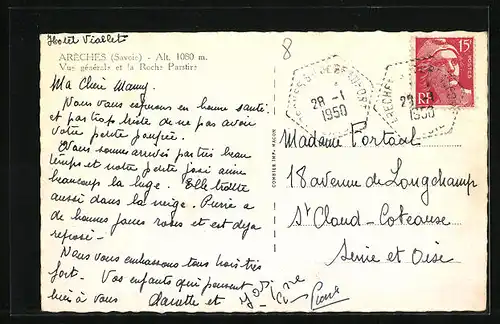 Hotel Viallet
ARÈCHES (Savoie) - Alt. 1080 m.
Vue générale et la Roche Parstire
8
Ma Chère Mamy.
Nous vous espérons en bonne santé
et pas trop triste de ne pas avoir
votre petite poupée.
Nous sommes arrivés par très beau
temps et notre petite José aime
beaucoup la luge. Elle trotte
aussi dans la neige. Pierre a
de bonnes joues roses et est déja
reposé -
Nous vous embrassons tous trois très
fort. Vos enfants qui pensent
bien à vous
et
Pierre
COMBIER IMP. MACON
28 -1
1950
15F
POSTES
RF
28 -1
1950
Madame Portaal
18 avenue de Longchamp
St Cloud - Coteause
Seine et Oise